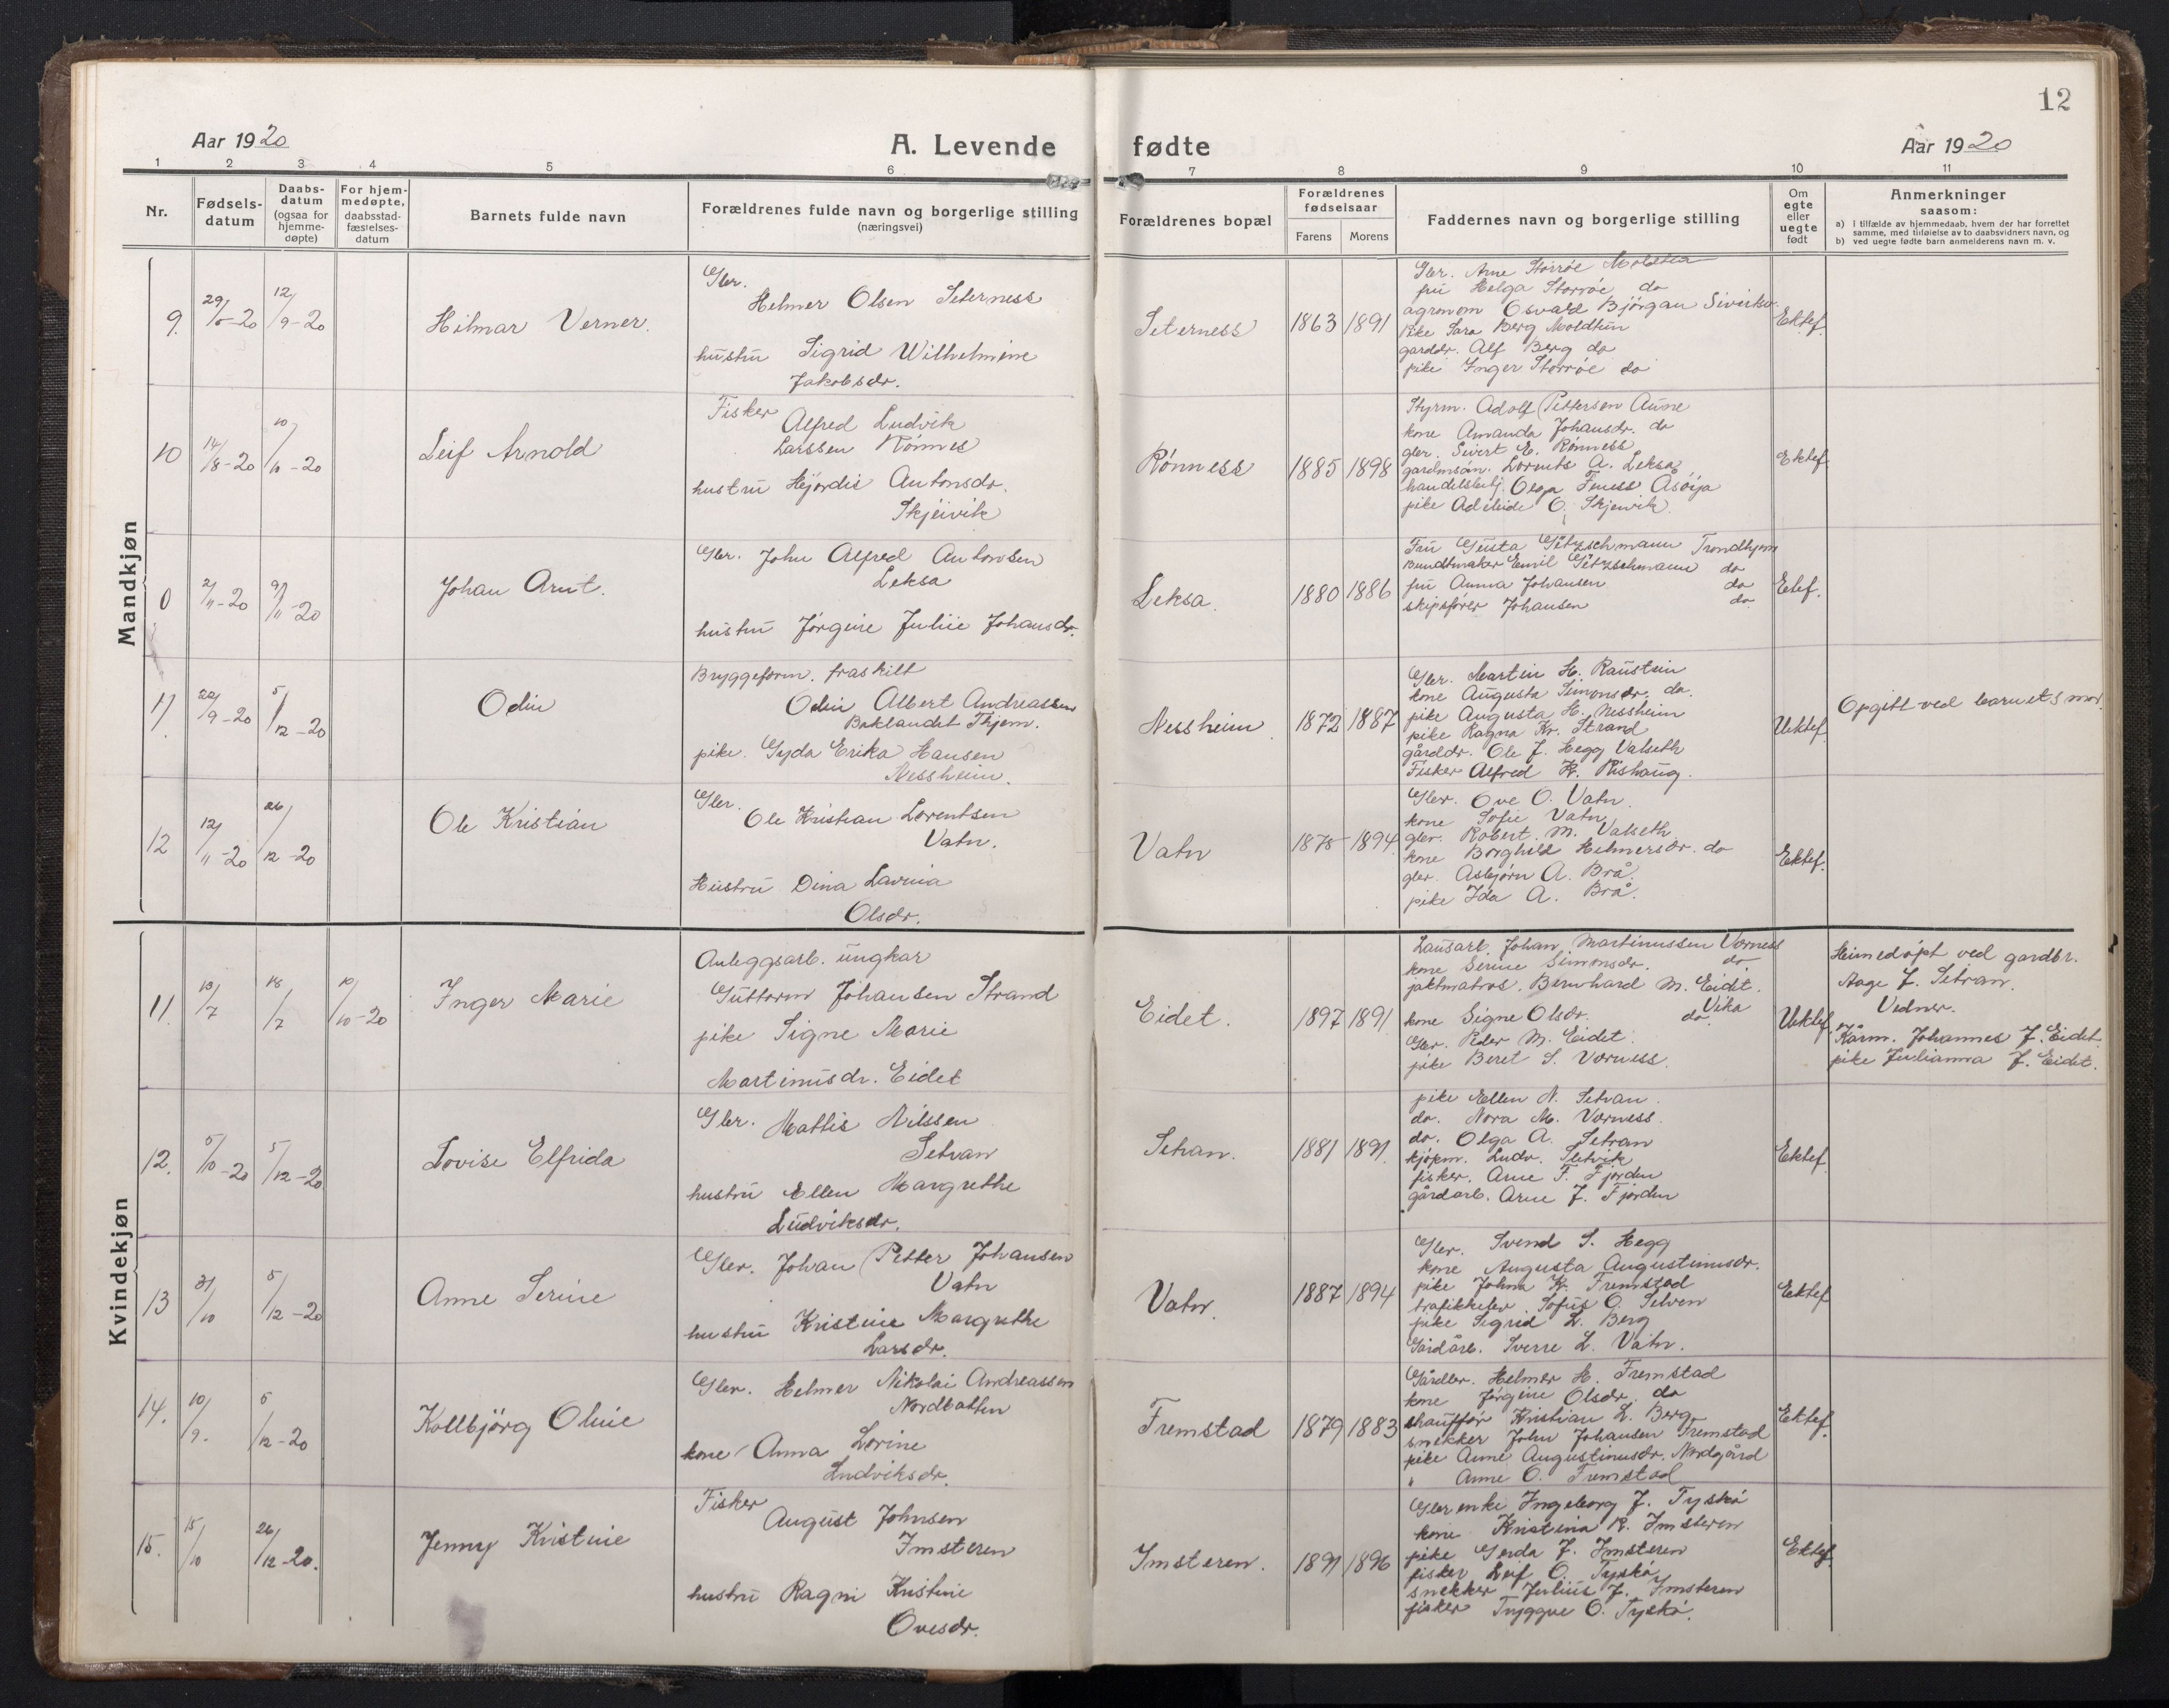 12
Aar 1920
A. Levende fødte
Aar 1920
1 2 3 4 5 6 7 8 9 10 11
Nr.
Fødsels-
datum
Daabs-
datum
(ogsaa for
hjemme-
døpte)
For hjem-
medøpte,
daabsstad-
fæstelses-
datum
Barnets fulde navn
Forældrenes fulde navn og borgerlige stilling
(næringsvei)
Forældrenes bopæl
Forældrenes
fødselsaar
Farens Morens
Faddernes navn og borgerlige stilling
Om
egte
eller
uegte
født
Anmerkninger
saasom:
a) i tilfælde av hjemmedaab, hvem der har forrettet
samme, med tilføielse av to daabsvidners navn, og
b) ved uegte fødte barn anmelderens navn m. v.
Mandkjøn
9.
29/8-20
12/9-20
Hilmar Verner.
Gbr.
Helmer Olsen Seterness
hustru Sigrid Wilhelmine
Jakobsdr.
Seterness
1863 1891
Gbr. Arne Storrøe Moldtun
fru Helga Storrøe do
agronom Osvald Bjørgan
pike Sara Berg Moldtun
garddr. Alf Berg do
pike Inger Storrøe do
Ektef.
10
14/8-20
10/10-20
Leif Arnold
Fisker
Alfred Ludvik
Larssen Rønnes
hustru Hjørdis Antonsdr.
Skjeivik
Rønness
1885 1898
Styrm. Adolf Pettersen Aune
kone Amanda Johansdr. do
gbr. Sivert E. Rønness
gardmsøn. Lorents A. Leksa
handelsbetj. Olga Fness Åsøya
pike Adeleide O. Skjervik
Ektef.
0
2/11-20
9/11-20
Johan Arnt.
Gbr. John Alfred Antonsen
Leksa
hustru Jørgine Julie Johansdr.
Leksa.
1880 1886
Fru Gusta Götzschmann Trondhjem
Bundtmaker Emil Götzschmann do
fru Anna Johansen do
skipsfører Johansen do
Etef.
11.
22/9-20
5/12-20
Odin
Bryggeform. fraskilt
Odin Albert Andreassen
Baklandet Thjem.
pike. Gyda Erika Hansen
Nessheim.
Nessheim.
1872 1887
Gbr. Martin H. Raustein
kone Augusta Simonsdr. do.
pike Augusta H. Nessheim
pike Ragna Kr. Strand
gårddr. Ole J. Hegg Valseth
Fisker Alfred K. Rishaug.
Uektef.
Opgitt ved barnets mor.
12
12/11-20
26/12-20
Ole Kristian
Gbr.
Ole Kristian Lorentsen
Vatn.
Hustru Dina Lavina
Olsdr.
Vatn
1875 1894
Gbr. Ove O. Vatn.
kone Sofie Vatn
gbr. Robert. M. Valseth
kone Borghild Helmersdr. do
gbr. Asbjørn A. Brå.
pike Ida A. Brå.
Ektef.
Kvindekjøn
11.
10/7
18/7
10/10-20
Inger Marie
Anleggsarb. ungkar
Guttorm Johansen Strand
pike Signe Marie
Martinusdr. Eidet
Eidet.
1897 1891
Lausarb. Johan Martinussen Vorness
kone Serine Simonsdr. do
jaktmatros. Bernhard M. Eidet.
Vika
kone Signe Olsdr. do
Gbr. Peder M. Eidet.
pike Beret S. Vorness.
Uektef.
Heimedøpt ved gardbr.
Aage J. Setran.
Vedner.
Kårm. Johannes J. Eidet.
pike Julianna J. Eidet.
12.
5/10-20
5/12-20
Lovise Elfrida
Gbr. Mattis Nilssen
Setran
hustru Ellen Margrethe
Ludviksdr.
Setran.
1881 1891.
pike Ellen N. Setran.
do. Nora M. Vorness.
do. Olga A. Setran
kjøpm. Ludv. Sletvik
fisker. Arne F. Fjorden
gårdarb. Arne J. Fjorden
Ektef.
13
31/10
5/12-20
Anne Serine
Gbr. Johan Petter Johansen
Vatn
hustru Kristine Margrethe
Larsdr.
Vatn.
1887 1894
Gbr. Svend S. Hegg
kone Augusta Augustinusdr.
pike Johna K. Fremstad
trafikkelev. Sofus O. Selven
pike Sigrid L. Berg
Gårdarb. Sverre L. Vatn.
Ektef.
14.
10/9.
5/12-20
Kollbjørg Oline
Gbr. Helmer Nikolai Andreassen
Nordbotten
kone Anna Lorine
Ludviksdr.
Fremstad
1879 1883
Gårdbr. Helmer H. Fremstad
kone Jørgine Olsdr. do
shauffør Kristian L. Berg
snekker John Johansen Fremstad
pike Anne Augustinusdr. Nordgård
" Anne O. Fremstad
Ektef.
15.
15/10
26/12-20.
Jenny Kristine
Fisker
August Johnsen
Imsteren
hustru Ragni Kristine
Ovesdr.
Imsteren.
1891 1896
Gbr enke Ingeborg J. Tyskø
kone Kristina R. Imsteren
pike Gerda J. Imsteren
fisker Leif O. Tyskø
snekker Julius J. Imsteren
fisker Tryggve O. Tyskø.
Ektef.